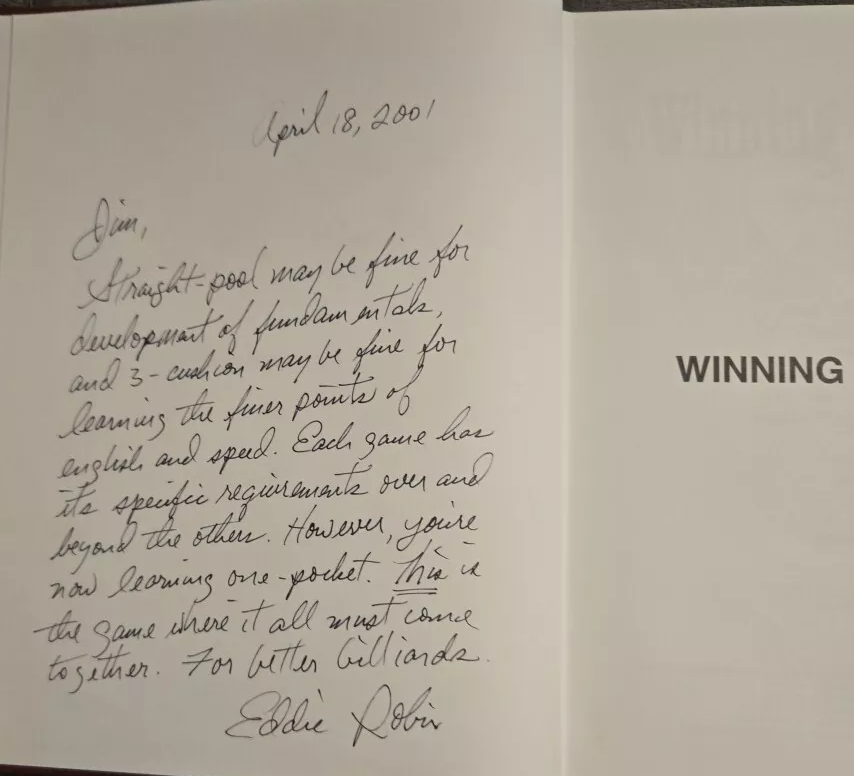 April 18, 2001
Jim,
Straight-pool may be fine for
development of fundamentals,
and 3-cushion may be fine for
learning the finer points of
english and speed. Each game has
its specific requirements over and
beyond the others. However, you're
now learning one-pocket. This is
the game where it all must come
together. For better billiards.
Eddie Robin
WINNING